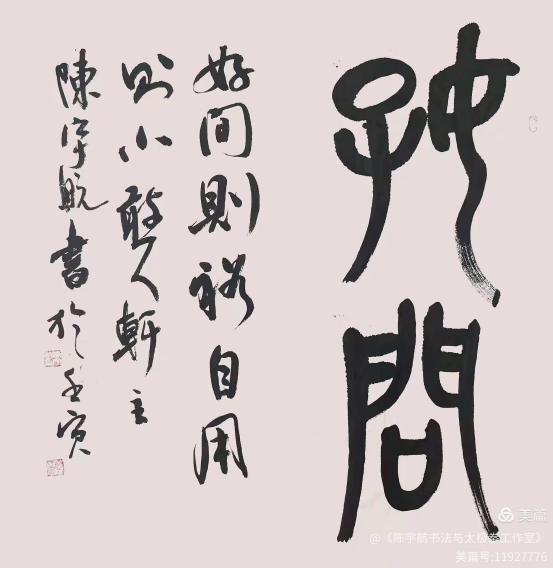 好問
好問則裕自用
则小敢人軒主
陳宇航書於壬寅
美篇
@《陈宇航书法与太极拳工作室》
美篇号:11927776